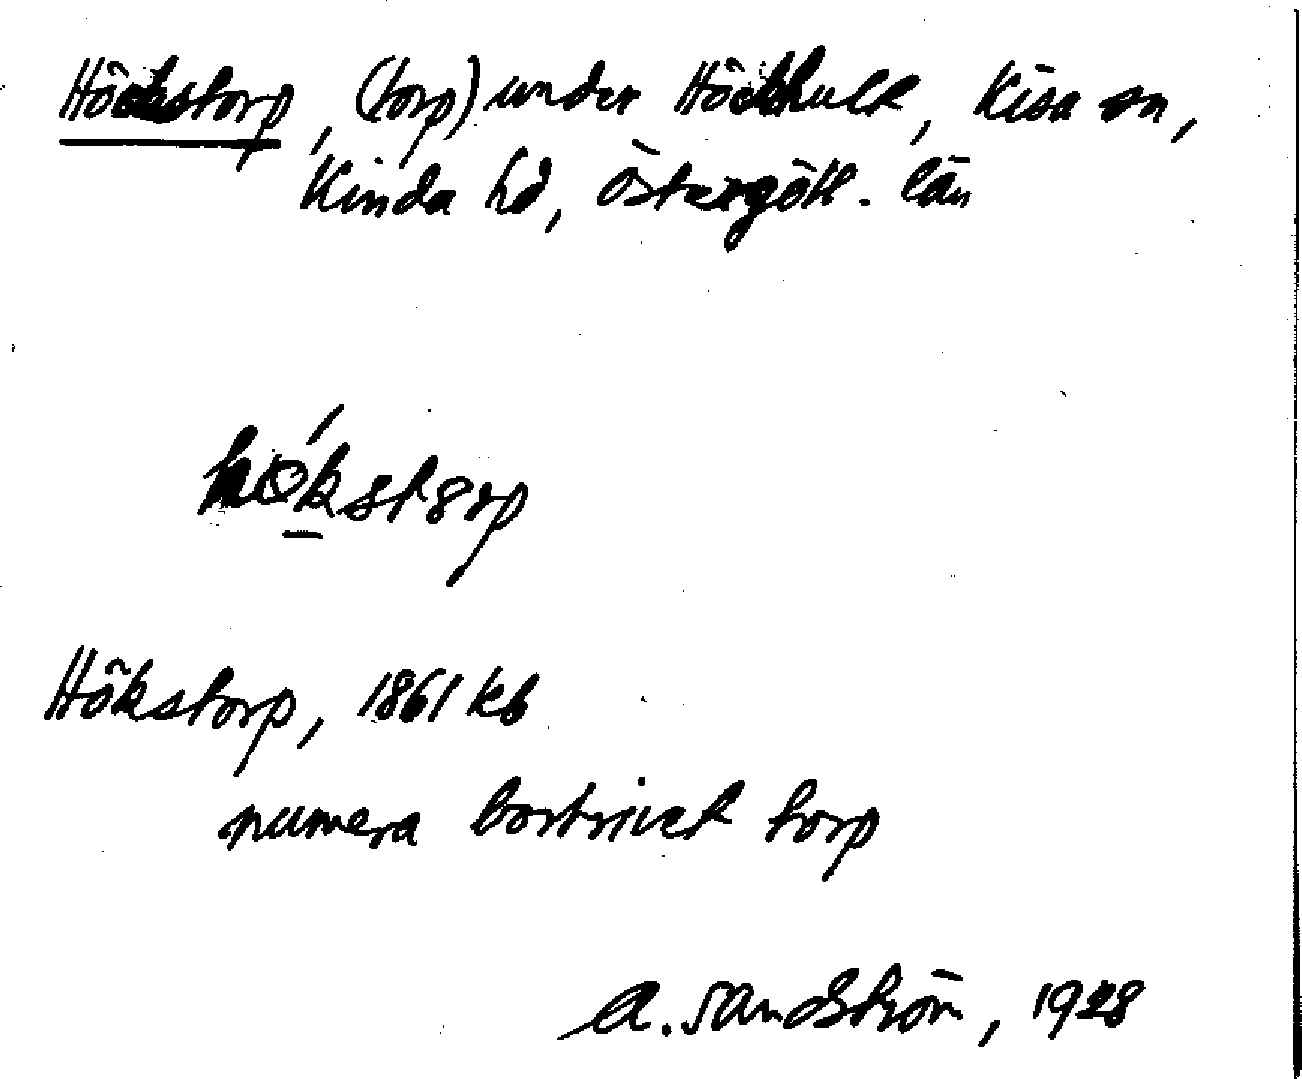 Höckstorp, (torp) under Höckhult, Kisa sn,
Kinda hd, Östergötl. län
hökstorp
Hökstorp, 1861 kb
numera bortrivet torp
A. Sandström, 1928